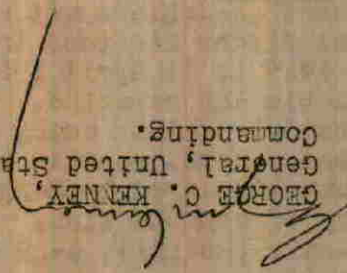 GEORGE C. KENNEY,
General, United Sta
Commanding.